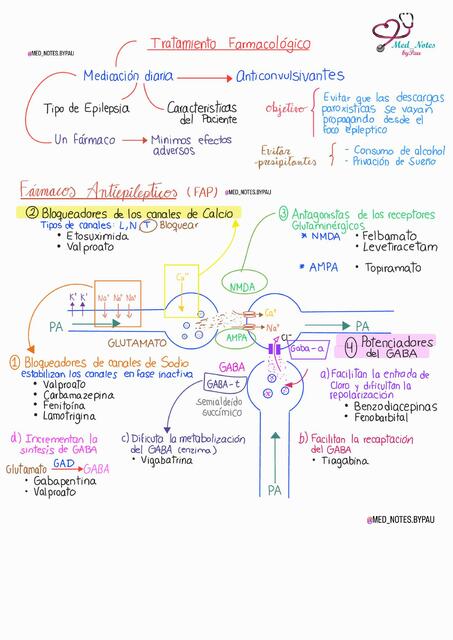 Tratamiento Farmacológico
@MED_NOTES.BYPAU
Med_Notes
byPau
Medicación diaria → Anticonvulsivantes
Tipo de Epilepsia
Características
del Paciente
Un fármaco → Mínimos efectos
adversos
Objetivo
Evitar que las descargas
paroxísticas se vayan
propagando desde el
foco epiléptico
Evitar
precipitantes
- Consumo de alcohol
- Privación de Sueño
Fármacos Antiepilépticos (FAP)
@MED_NOTES.BYPAU
② Bloqueadores de los canales de Calcio
Tipos de canales: L, N, T Bloquear
• Etosuximida
• Valproato
③ Antagonistas de los receptores
Glutaminérgicos
* NMDA
• Felbamato
• Levetiracetam
* AMPA
• Topiramato
K⁺ K⁺
Na⁺ Na⁺ Na⁺
Ca⁺⁺
NMDA
Ca⁺
Na⁺
AMPA
PA
GLUTAMATO
PA
Cl⁻
Gaba-a
① Bloqueadores de canales de Sodio
estabilizan los canales en fase inactiva
• Valproato
• Carbamazepina
• Fenitoína
• Lamotrigina
GABA
GABA-t
semialdeído
succímico
④ Potenciadores
del GABA
a) Facilitan la entrada de
Cloro y dificultan la
repolarización
• Benzodiacepinas
• Fenobarbital
d) Incrementan la
síntesis de GABA
Glutamato GAD → GABA
• Gabapentina
• Valproato
c) Dificulta la metabolización
del GABA (enzima)
• Vigabatrina
b) Facilitan la recaptación
del GABA
• Tiagabina
PA
@MED_NOTES.BYPAU